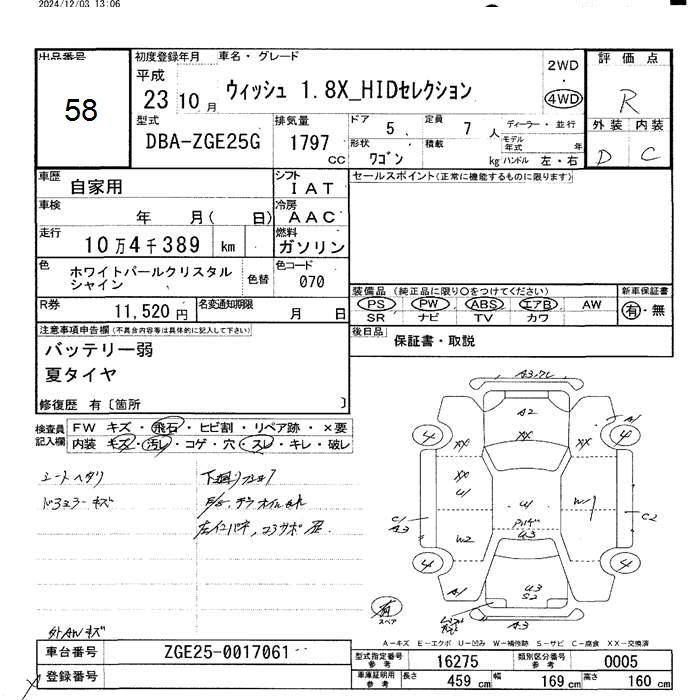 2024/12/03 13:06
出品番号
58
初度登録年月
平成
23 10 月
車名・グレード
ウィッシュ 1.8X_HIDセレクション
2WD
・
4WD
評価点
R
外装 内装
D C
型式
DBA-ZGE25G
排気量
1797
CC
ドア 5
定員 7 人
ディーラー・並行
モデル年式 年
形状 ワゴン
積載 kg
ハンドル 左・右
車歴 自家用
シフト
IAT
セールスポイント(正常に機能するものに限ります)
車検
年 月( 日)
冷房
AAC
走行 10万4千389 km
燃料
ガソリン
色 ホワイトパールクリスタル
シャイン
色替
色コード
070
R券 11,520円
名変通知期限 月 日
装備品(純正品に限り〇をつけてください)
PS PW ABS エアB AW
SR ナビ TV カワ
新車保証書
有・無
後日品 保証書・取説
注意事項申告欄(不具合内容等は具体的に記入して下さい)
バッテリー弱
夏タイヤ
修復歴 有〔箇所 〕
検査員
記入欄
FW キズ・飛石・ヒビ割・リペア跡・×要
内装 キズ・汚レ・コゲ・穴・スレ・キレ・破レ
シートヘタリ
ドアミラーキズ
外AWキズ
A2
XX
XX
4
4
XX
U1
W1
C2
W2
U3
A1
U3
S2
4
4
A3
有
スペア
A-キズ E-エクボ U-凹み W-補修跡 S-サビ C-腐食 XX-交換済
車台番号 ZGE25-0017061
登録番号
型式指定番号
参考
16275
類別区分番号
参考
0005
車庫証明用
参考
長さ 459 cm 幅 169 cm 高さ 160 cm